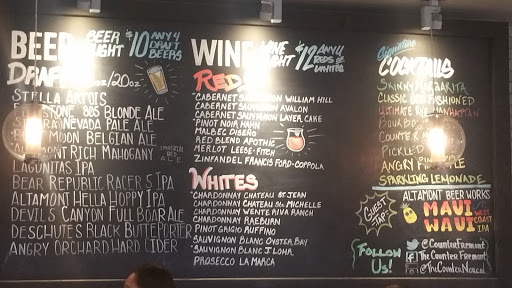 BEER
BEER
$10 ANY 4
DRAFT
BEERS
DRAFT
/20oz
STELLA ARTOIS
805 BLONDE ALE
NEVADA PALE ALE
MOON BELGIAN ALE
ALTAMONT RICH MAHOGANY
LAGUNITAS IPA
BEAR REPUBLIC RACER 5 IPA
ALTAMONT HELLA HOPPY IPA
DEVILS CANYON FULL BOAR ALE
DESCHUTES BLACK BUTTE PORTER
ANGRY ORCHARD HARD CIDER
WINE
WINE
$12 ANY 4
REDS OR
WHITES
REDS
CABERNET SAUVIGNON WILLIAM HILL
CABERNET SAUVIGNON AVALON
CABERNET SAUVIGNON LAYER CAKE
PINOT NOIR HAHN
MALBEC DISEÑO
RED BLEND APOTHIC
MERLOT LEESE-FITCH
ZINFANDEL FRANCIS FORD-COPPOLA
WHITES
CHARDONNAY CHATEAU ST. JEAN
CHARDONNAY CHATEAU STE. MICHELLE
CHARDONNAY WENTE RIVA RANCH
CHARDONNAY RAEBURN
PINOT GRIGIO RUFFINO
SAUVIGNON BLANC OYSTER BAY
SAUVIGNON BLANC J. LOHR
PROSECCO LA MARCA
Signature
COCKTAILS
SKINNY MARGARITA
CLASSIC OLD FASHIONED
ULTIMATE RYE MANHATTAN
COUNTER
PICKLE
ANGRY
SPARKLING LEMONADE
GUEST
TAP
ALTAMONT BEER WORKS
MAUI WEST
WAUI COAST
IPA
FOLLOW
US!
@CounterFremont
The Counter Fremont
@TheCounterNorcal